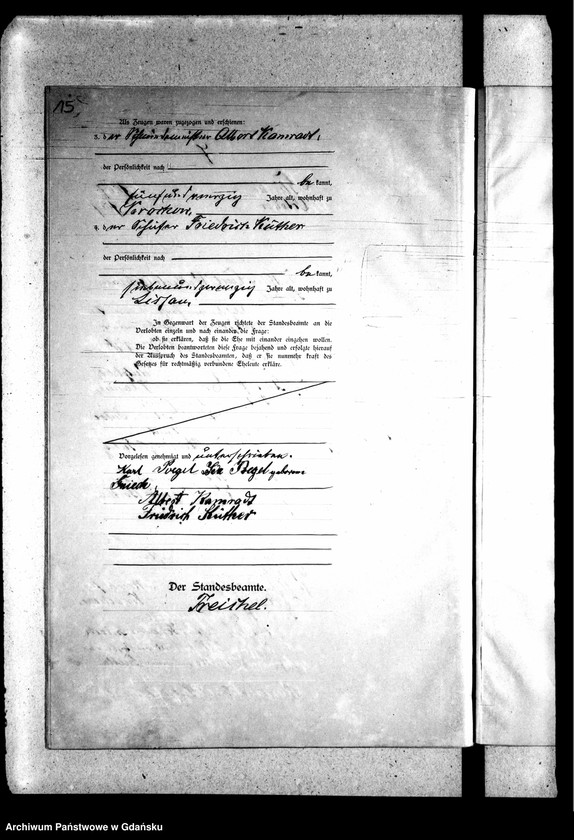 15
Als Zeugen waren zugezogen und erschienen:
3. der Albert Kamradt,
der Persönlichkeit nach
be kannt,
fünfundzwanzig Jahre alt, wohnhaft zu
4. der Friedrich Küther
der Persönlichkeit nach
be kannt,
siebenundzwanzig Jahre alt, wohnhaft zu
Lissau,
In Gegenwart der Zeugen richtete der Standesbeamte an die
Verlobten einzeln und nach einander die Frage:
ob sie erklären, daß sie die Ehe mit einander eingehen wollen.
Die Verlobten beantworteten diese Frage bejahend und erfolgte hierauf
der Ausspruch des Standesbeamten, daß er sie nunmehr kraft des
Gesetzes für rechtmäßig verbundene Eheleute erkläre.
Vorgelesen, genehmigt und unterschrieben.
Karl geborene
Albert Kamradt
Friedrich Küther
Der Standesbeamte.
Archiwum Państwowe w Gdańsku